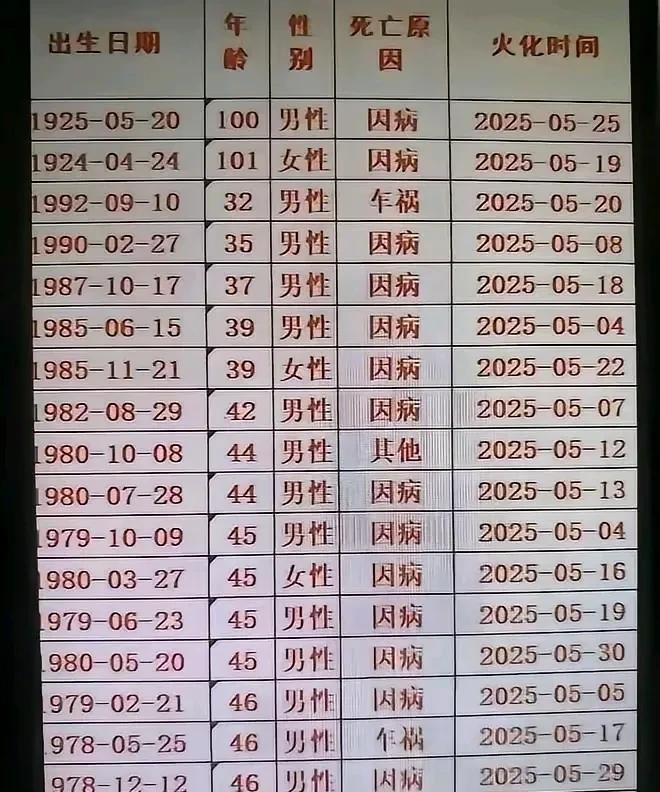 出生日期 年龄 性别 死亡原因 火化时间
1925-05-20 100 男性 因病 2025-05-25
1924-04-24 101 女性 因病 2025-05-19
1992-09-10 32 男性 车祸 2025-05-20
1990-02-27 35 男性 因病 2025-05-08
1987-10-17 37 男性 因病 2025-05-18
1985-06-15 39 男性 因病 2025-05-04
1985-11-21 39 女性 因病 2025-05-22
1982-08-29 42 男性 因病 2025-05-07
1980-10-08 44 男性 其他 2025-05-12
1980-07-28 44 男性 因病 2025-05-13
1979-10-09 45 男性 因病 2025-05-04
1980-03-27 45 女性 因病 2025-05-16
1979-06-23 45 男性 因病 2025-05-19
1980-05-20 45 男性 因病 2025-05-30
1979-02-21 46 男性 因病 2025-05-05
1978-05-25 46 男性 车祸 2025-05-17
1978-12-12 46 男性 因病 2025-05-29